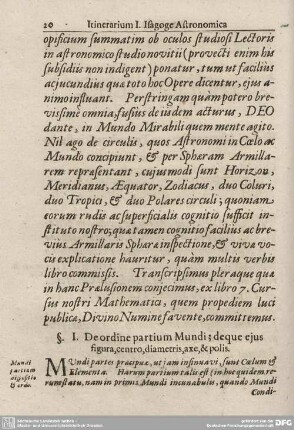 20 Itinerarium I. Isagoge Astronomica
opificium summatim ob oculos studiosi Lectoris
in astronomico studio novitii (provecti enim his
subsidiis non indigent) ponatur, tum ut facilius
ac jucundius quæ toto hoc Opere dicentur, ejus a-
nimo influant. Perstringam quàm potero bre-
vissimè omnia, fusius de iisdem acturus, DEO
dante, in Mundo Mirabili quem mente agito.
Nil ago de circulis, quos Astronomi in Cœlo ac
Mundo concipiunt, & per Sphæram Armilla-
rem repræsentant, cujusmodi sunt Horizon,
Meridianus, Æquator, Zodiacus, duo Coluri,
duo Tropici, & duo Polares circuli; quoniam
eorum rudis ac superficialis cognitio sufficit in-
stituto nostro; quæ tamen cognitio facilius ac bre-
vius Armillaris Sphæræ inspectione, & viva vo-
cis explicatione hauritur, quàm multis verbis
libro commissis. Transcripsimus pleraque quæ
in hanc Prælusionem conjecimus, ex libro 7. Cur-
sus nostri Mathematici, quem propediem luci
publicæ, Divino Numine favente, committemus.
§. I. De ordine partium Mundi; deque ejus
figura, centro, diametris, axe, & polis.
Mundi
partium
digestio
& ordo.
MUndi partes præcipuæ, ut jam insinuavi, sunt Cœlum &
Elementa. Harum partium talis est (in hoc quidem re-
rum statu, nam in primis Mundi incunabulis, quando Mundi
Condi-